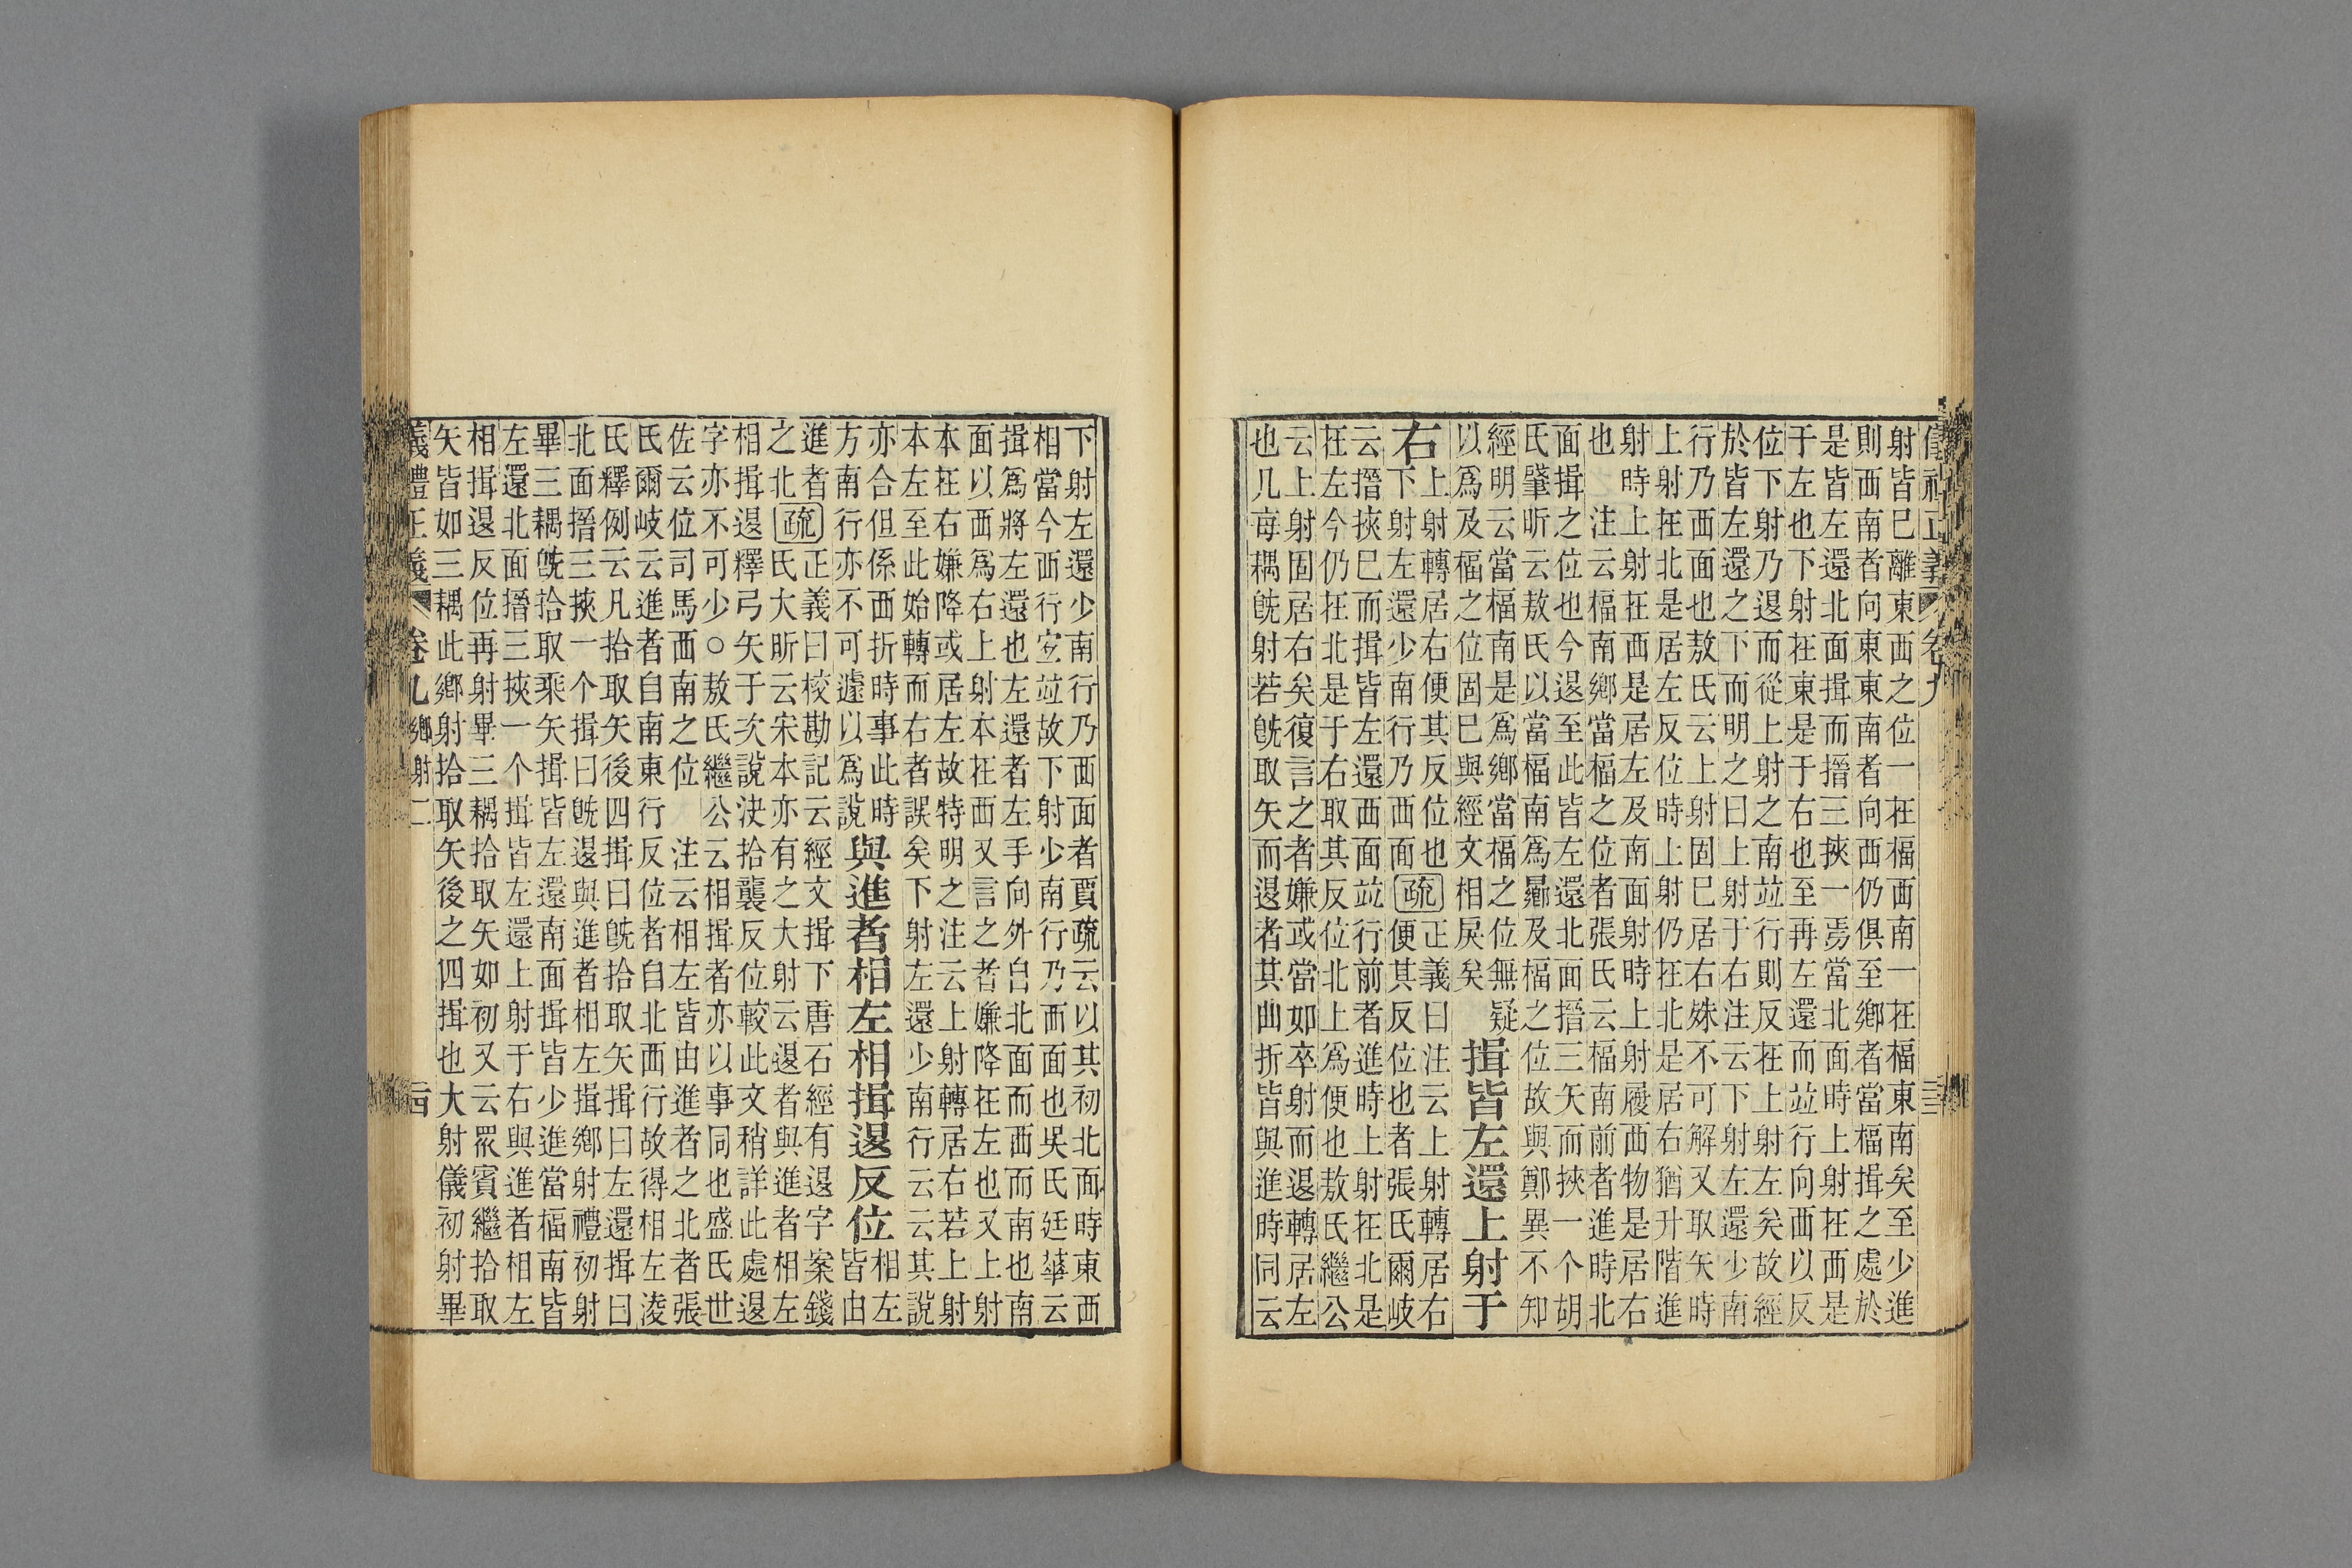 儀禮正義　卷九
射皆巳離東西之位一在楅西南一在楅東南矣至少進
則西南者向東東南者向西仍俱至鄉者當楅揖之處於
是皆左還北面揖而搢三挾一焉當北面時上射在西是
于左也下射在東是于右也至再左還而竝行向西以反
位下射乃退而從上射之南竝行則反在上射左矣故經
於皆左還之下而明之曰上射于右注云下射左還少南
行乃西面也敖氏云上射固巳居右姝不可解又取矢時
上射在北是居左反位時上射仍在北是居右猶升階進
射時上射在西是居左及南面射時上射履西物是居右
也　注云楅南鄉當楅之位者張氏云楅南前者進時北
面揖之位也今退至此皆左還北面搢三矢而挾一个胡
氏肇昕云敖氏以當楅南為及楅之位故與鄭異不知
經明云當楅南是為鄉當楅之位無疑
以為及楅之位固巳與經文相戾矣
揖皆左還上射于
右
上射轉居右便其反位也
下射左還少南行乃西面
疏
正義曰注云上射轉居右
便其反位也者張氏爾岐
云搢挾巳而揖皆左還西面竝行前者進時上射在北是
在左今仍在北是于右取其反位北上為便也敖氏繼公
云上射固居右矣復言之者嫌或當如卒射而退轉居左
也凡每耦既射若既取矢而退者其曲折皆與進時同云
下射左還少南行乃西面者賈疏云以其初北面時東西
相當今西行宜竝故下射少南行乃西面也吳氏廷華云
揖為將左還也左還者左手向外自北面而西而南也南
面以西為右上射本在西又言之者嫌降在左也又上射
本在右嫌降或居左故特明之注云上射轉居右若上射
本左至此始轉而右者誤矣下射左還少南行云云其說
亦合但係西折時事此時
方南行亦不可遽以為說
與進者相左相揖退反位
相左
皆由
進者
之北
疏
正義曰校勘記云經文揖下唐石經有退字案錢
氏大昕云宋本亦有之大射云退者與進者相左
相揖退釋弓矢于次說決拾襲反位較此文稍詳此處退
字亦不可少○敖氏繼公云相揖者亦以事同也盛氏世
佐云位司馬西南之位　注云相左皆由進者之北者張
氏爾岐云進者自南東行反位者自北西行故得相左淩
氏釋例云凡拾取矢後四揖曰既拾取矢揖曰左還揖曰
北面搢三挾一个揖曰既退與進者相左揖鄉射禮初射
畢三耦既拾取乘矢揖皆左還南面揖皆少進當楅南皆
左還北面搢三挾一个揖皆左還上射于右與進者相左
相揖退反位再射畢三耦拾取矢如初又云衆賓繼拾取
矢皆如三耦此鄉射拾取矢後之四揖也大射儀初射畢
儀禮正義　卷九鄉射二